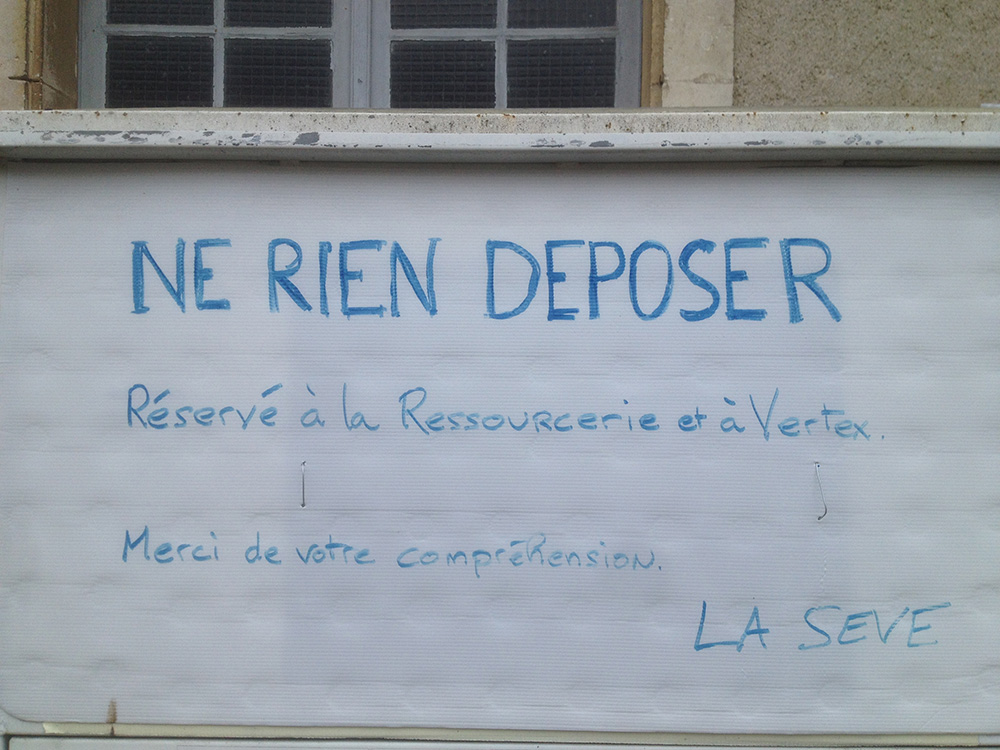 NE RIEN DEPOSER
Réservé à la Ressourcerie et à Vertex.
Merci de votre compréhension.
LA SEVE